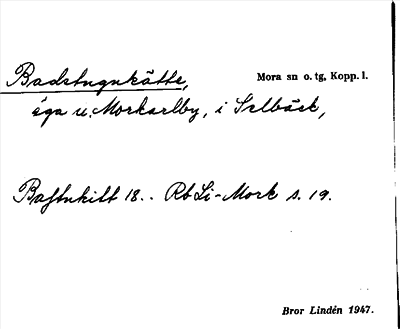 Badstugukätte, Mora sn o. tg, Kopp. l.
äga u. Morkarlby, i Selbäck,
Bastukilt 18.. Rb Li-Mork s. 19.
Bror Lindén 1947.